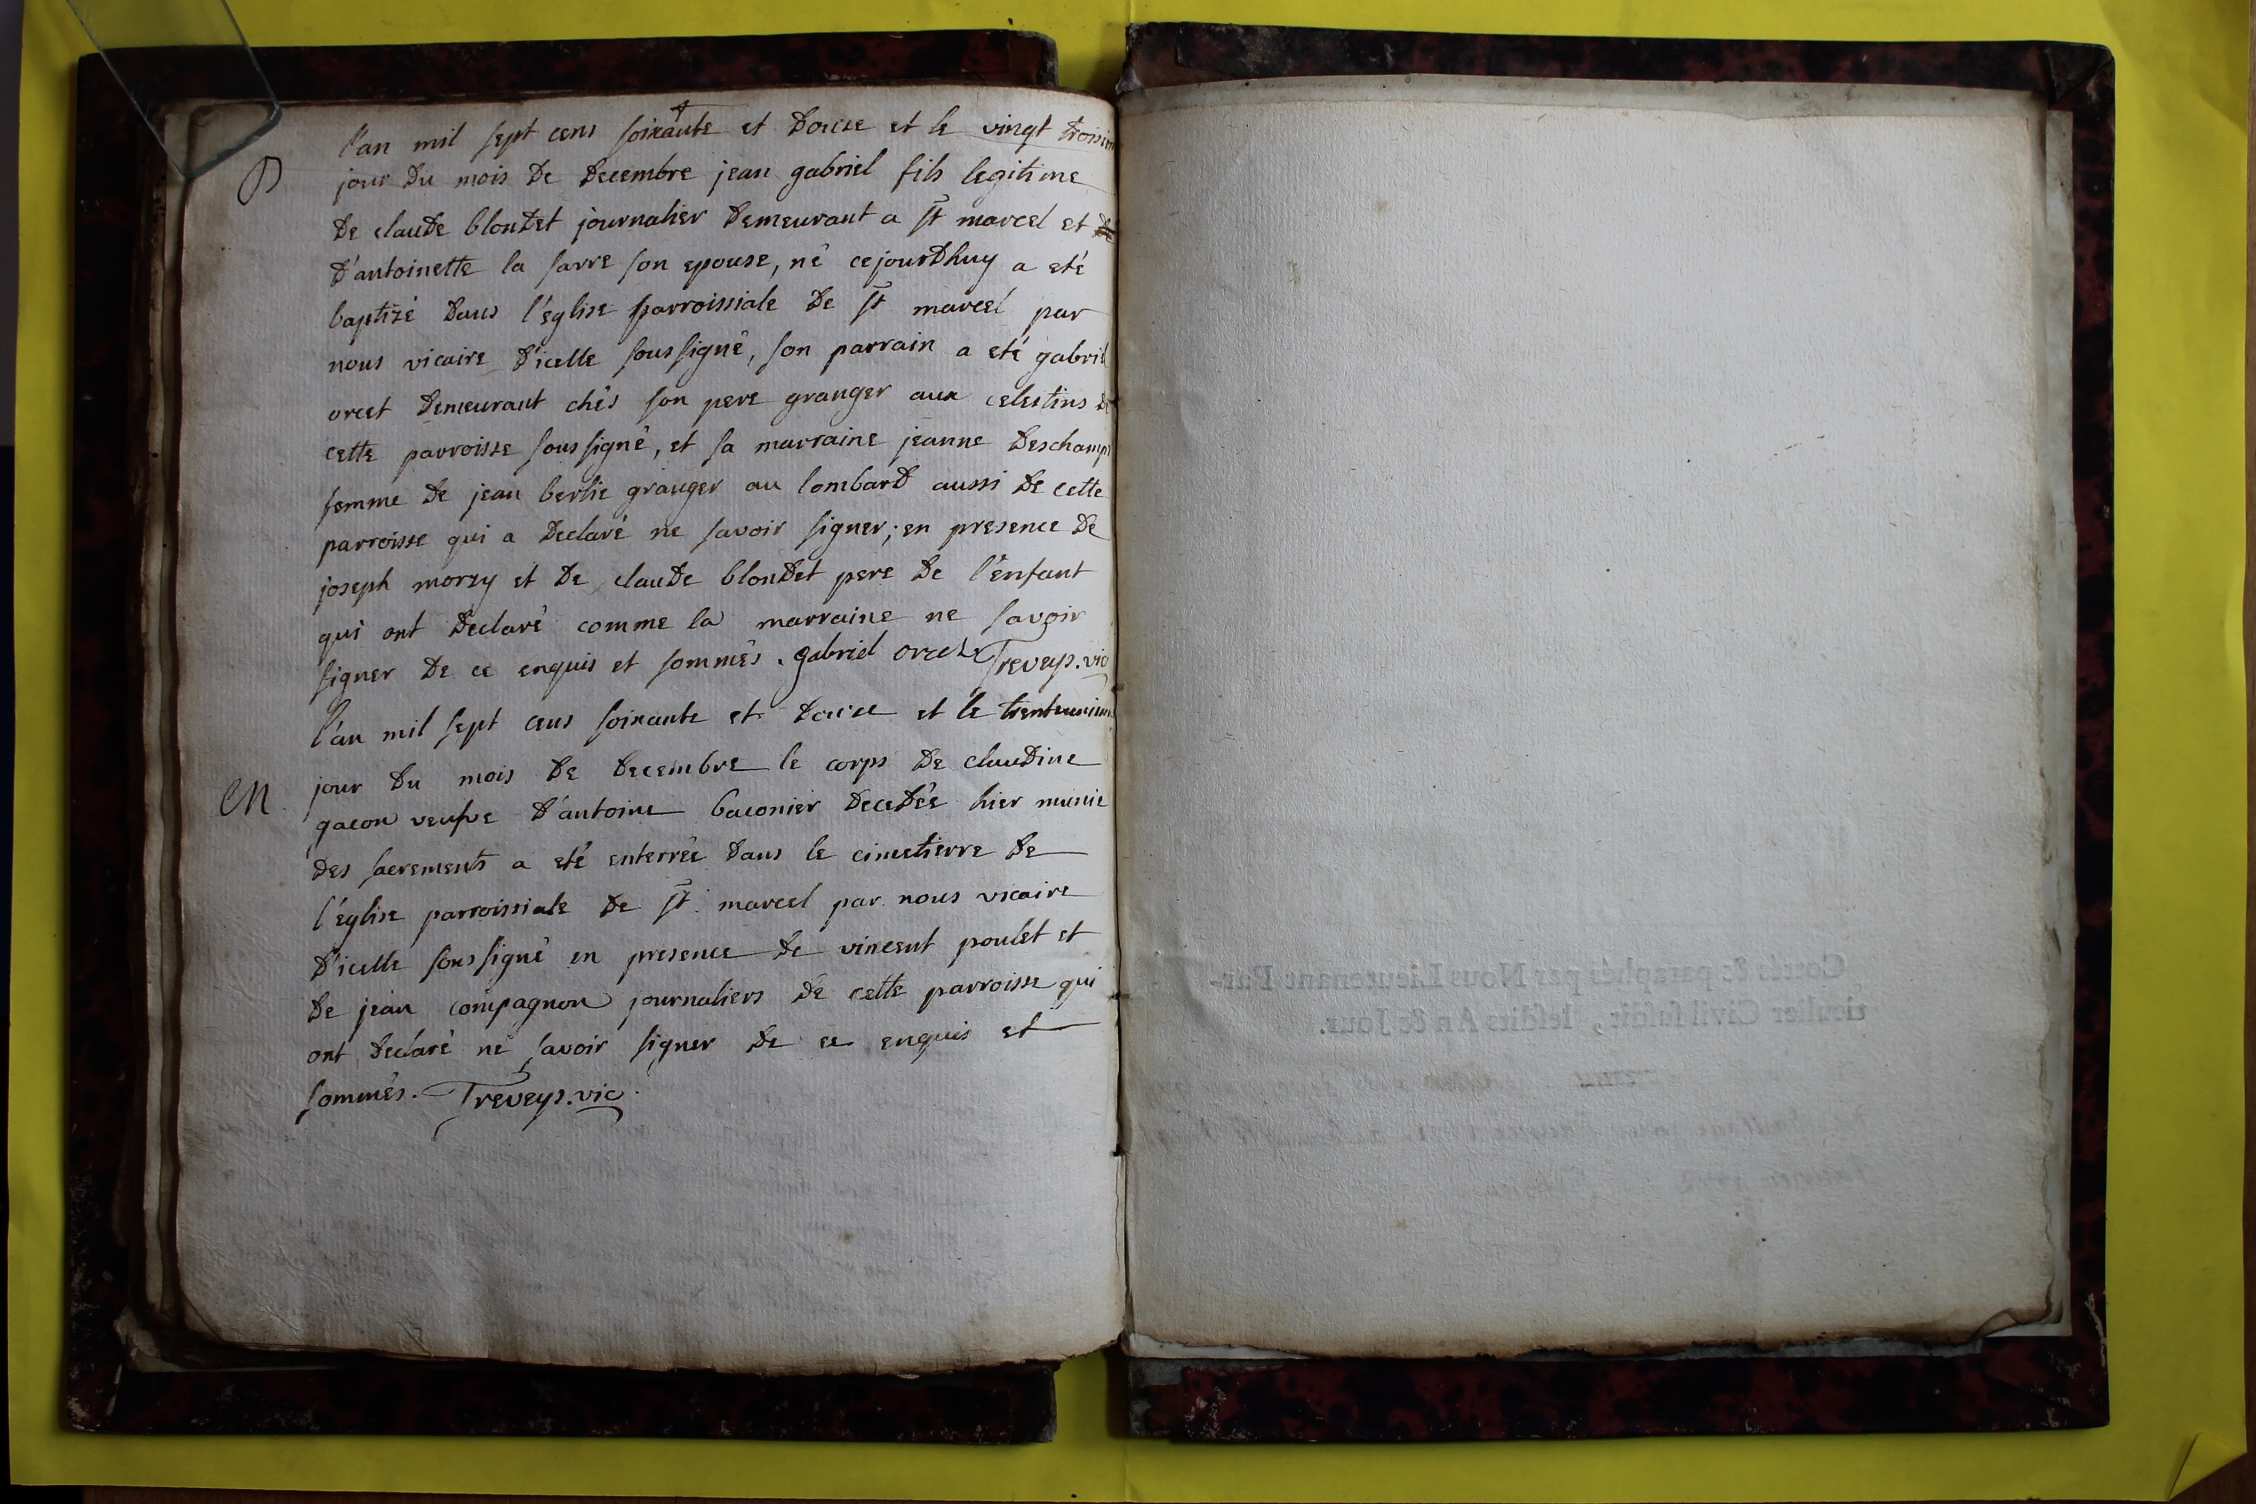 l'an mil sept cens soixante et douze et le vingt troisim
B
jour du mois de decembre jean gabriel fils legitime
de claude blondet journalier demeurant a st marcel et de
d'antoinette la farre son epouse, né cejourdhuy a eté
baptizé dans l'église parroissiale de st marcel par
nous vicaire d'icelle soussigné, son parrain a eté gabriel
orcet demeurant chés son pere granger aux celestins de
cette parroisse soussigné, et sa marraine jeanne deschamps
femme de jean berlie granger au lombard aussi de cette
parroisse qui a declaré ne savoir signer; en presence de
joseph morzy et de claude blondet pere de l'énfant
qui ont declaré comme la marraine ne savoir
signer de ce enquis et sommés. gabriel orcet Treveys.vic
l'an mil sept cens soixante et douze et le trenteuniem
jour du mois de decembre le corps de claudine
M
gacon veufve d'antoine baconier decedée hier munie
des sacrements a eté enterrée dans le cimetierre de
l'église parroissiale de st marcel par nous vicaire
d'icelle soussigné en presence de vincent poulet et
de jean compagnon journaliers de cette parroisse qui
ont declaré ne savoir signer de ce enquis et
sommés. Treveys.vic
Cottés & paraphés par Nous Lieutenant Par-
ticulier Civil susdit, lesdits An & Jour.